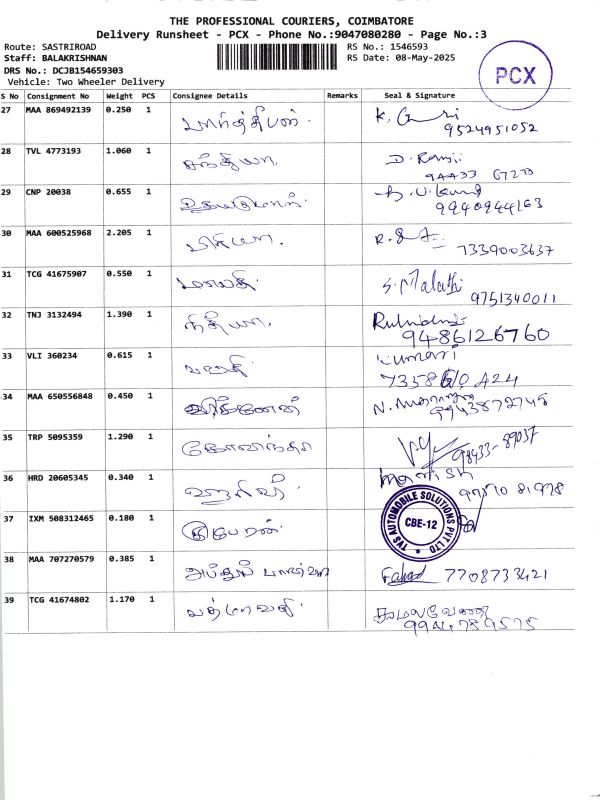 THE PROFESSIONAL COURIERS, COIMBATORE
Delivery Runsheet - PCX - Phone No.:9047080280 - Page No.:3
Route: SASTRIROAD
Staff: BALAKRISHNAN
DRS No.: DCJB154659303
Vehicle: Two Wheeler Delivery
RS No.: 1546593
RS Date: 08-May-2025
PCX
S No Consignment No Weight PCS Consignee Details Remarks Seal & Signature
27 MAA 869492139 0.250 1 பார்த்தீபன். K. 9524951052
28 TVL 4773193 1.060 1 சந்தியா. D. Ramji
94433 67273
29 CNP 20038 0.655 1 உதயகுமார்.
9940944163
30 MAA 600525968 2.205 1 பிரியா. 7339003637
31 TCG 41675907 0.550 1 மாலதி. S. Malathi
9751340011
32 TNJ 3132494 1.390 1 நித்யா.
9486126760
33 VLI 360234 0.615 1 Kumari
34 MAA 650556848 0.450 1 விக்னேஷ் N.
9943872748
35 TRP 5095359 1.290 1 கோவிந்தா 98433-89037
36 HRD 20605345 0.340 1 ஹரிணி.
37 IXM 508312465 0.180 1 குபேரன். TVS AUTOMOBILE SOLUTIONS PVT LTD
CBE-12
38 MAA 707270579 0.385 1 அப்துல் Fahad 7708733421
39 TCG 41674802 1.170 1 பத்மாவதி. கமலவேணி
9944789575